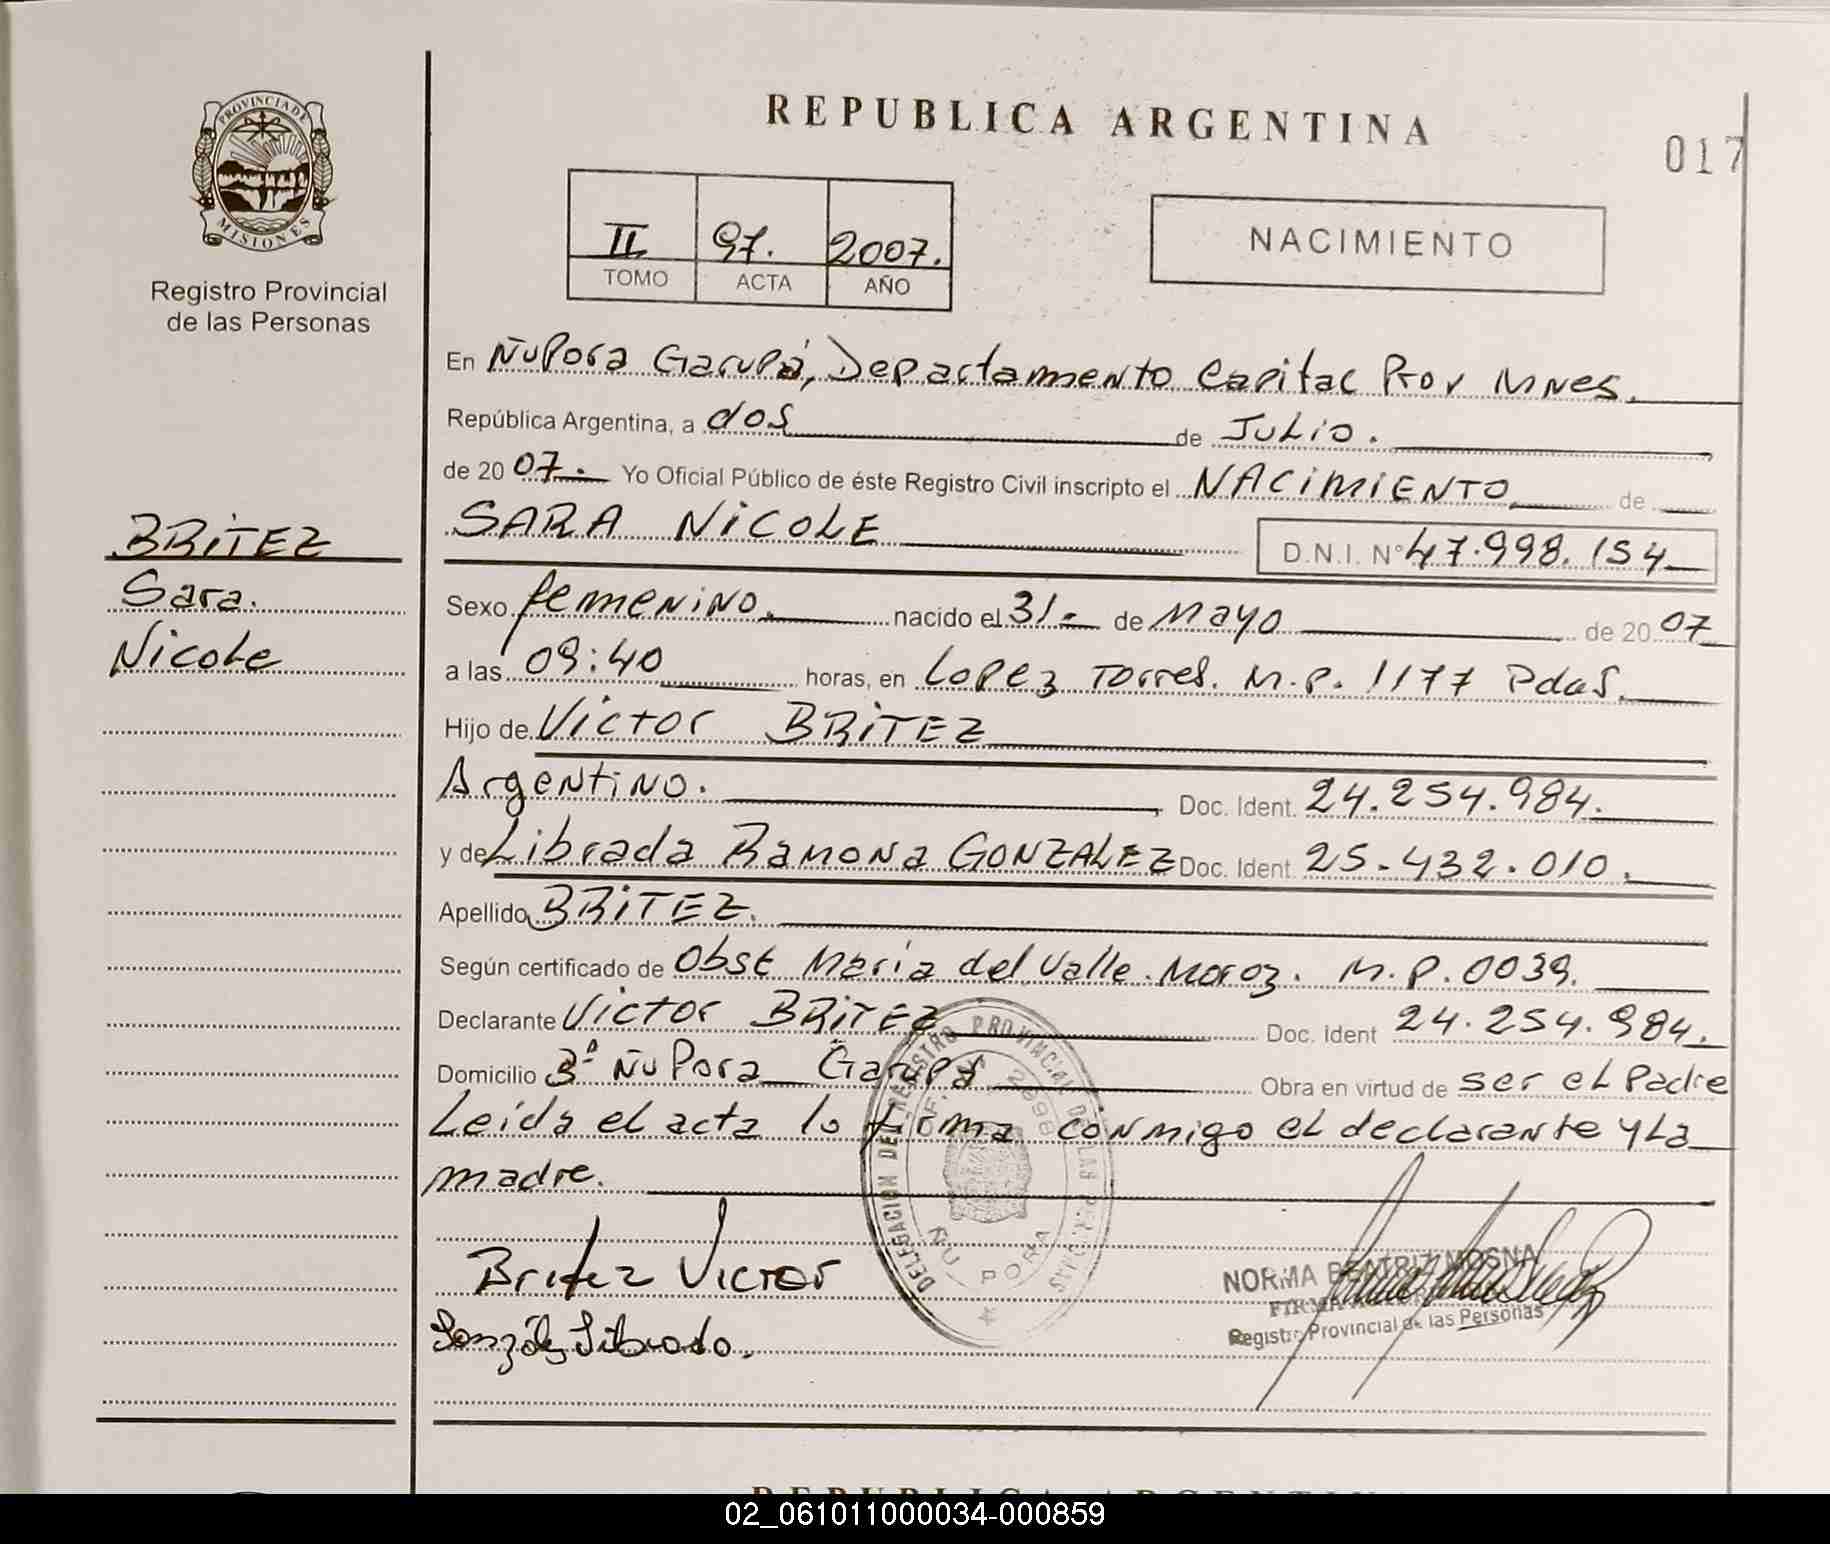 REPUBLICA ARGENTINA
017
PROVINCIA DE
MISIONES
Registro Provincial
de las Personas
II 97. 2007.
TOMO ACTA AÑO
NACIMIENTO
En Ñu Pora Garupá, Departamento Capital Prov Mnes.
República Argentina, a dos de Julio.
de 20 07. Yo Oficial Público de éste Registro Civil inscripto el NACIMIENTO de
SARA NICOLE D.N.I. N° 47.998.154
BRITEZ
Sara.
Nicole
Sexo femenino. nacido el 31 de Mayo de 20 07
a las 09:40 horas, en Lopez Torres. M.P. 1177 Pdas.
Hijo de Victor BRITEZ
Argentino. Doc. Ident. 24.254.984.
y de Librada Ramona GONZALEZ Doc. Ident. 25.432.010.
Apellido BRITEZ.
Según certificado de Obst María del Valle Moroz. M.P. 0039.
Declarante Victor BRITEZ Doc. Ident 24.254.984.
Domicilio Bº Ñu Pora Garupá Obra en virtud de ser el Padre
Leída el acta lo firma conmigo el declarante y La
madre.
DELEGACION DEL REGISTRO PROVINCIAL DE LAS PERSONAS
ÑU PORA
Britez Victor
González Librada.
NORMA BEATRIZ MOSNA
Registro Provincial de las Personas
REPUBLICA ARGENTINA
02_061011000034-000859